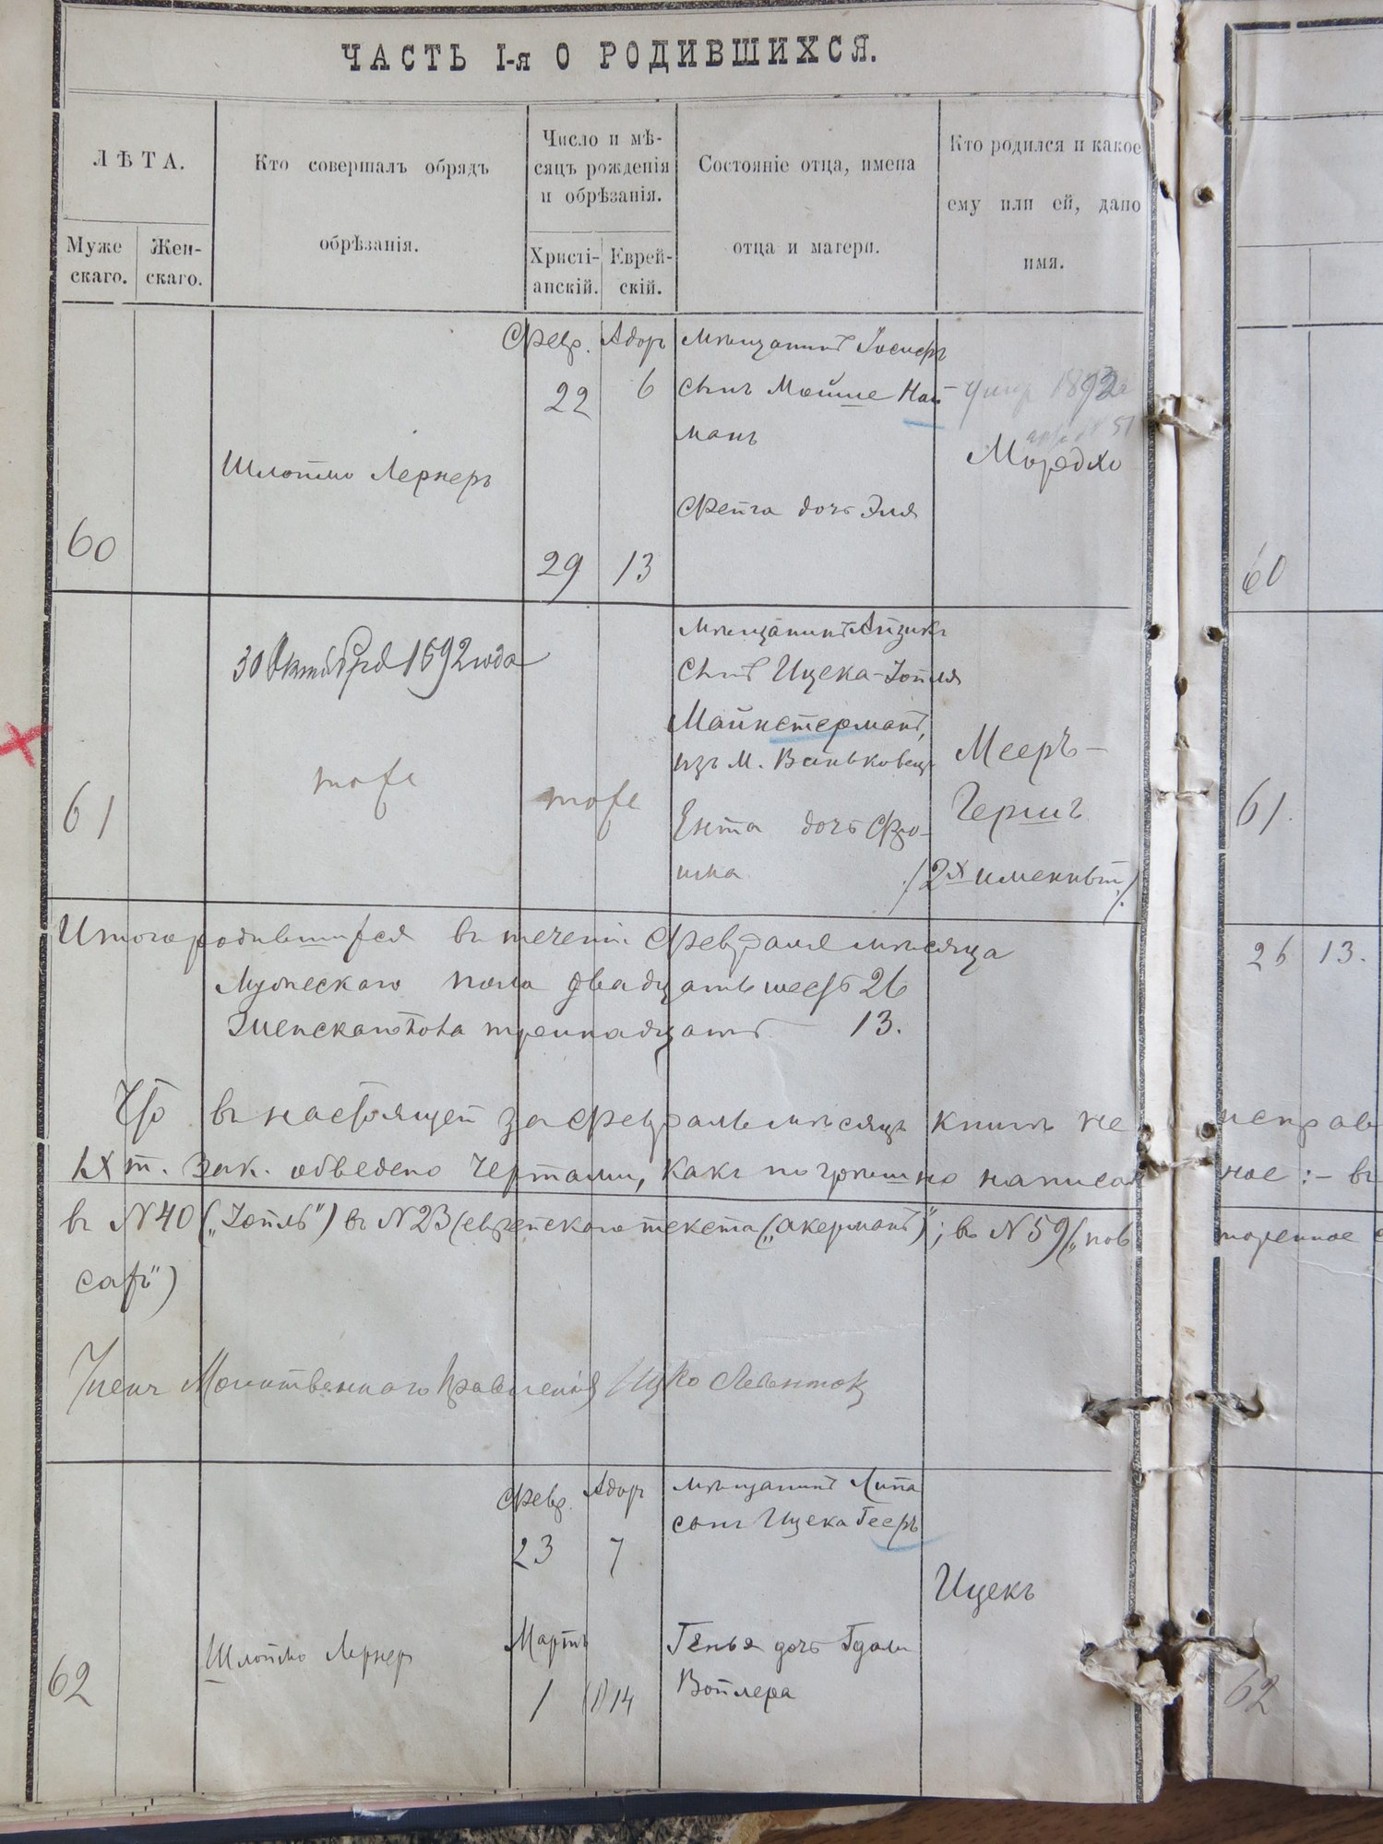 ЧАСТЬ I-я О РОДИВШИХСЯ.
ЛѢТА.
Муже
скаго.
Жен-
скаго.
Кто совершалъ обрядъ
обрѣзанія.
Число и мѣ-
сяцъ рожденія
и обрѣзанія.
Христі-
анскій.
Еврей-
скій.
Состояніе отца, имена
отца и матери.
Кто родился и какое
ему или ей, дано
имя.
60
Шлоймо Лернеръ
Февр. Адоръ
22 6
29 13
Мѣщанинъ Іосифъ
сынъ Мойше Най-
манъ
Фейга дочь Эля
умер 1892
51
Мордхо
60
61
30 Октября 1892 года
тоже
тоже
Мѣщанинъ Айзикъ
сынъ Ицека-Іойля
Майнстерманъ,
изъ М.Ваньковецъ
Ента дочь Фро-
има
Мееръ-
Гершъ
/2хъ именный/
61.
Итого родившихся въ теченіи Февраля мѣсяца
Мужескаго пола двадцать шесть 26
Женскаго пола тринадцать 13.
26 13.
Что въ настоящей за Февраль мѣсяцъ книгѣ не исправ
IX т. Зак. обведено чертами, какъ погрѣшно написанное :- въ
въ №40 („Іойль“) въ №23 (еврейскаго текста („акерманъ“); въ №59 („повторенное
Членъ Молитвеннаго Правленія Ицко
62
Шлоймо Лернеръ
Февр. Адоръ
23 7
Мартъ
1 14
мѣщанинъ Липа
сынъ Ицека Гееръ
Генья дочь Гдали
Войлера
Ицекъ
62